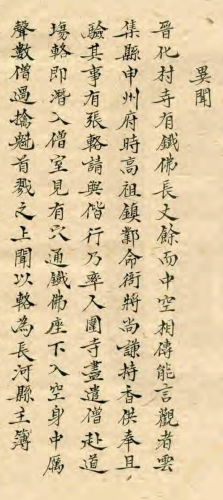 異聞
晉化村寺有鐵佛長丈餘而中空相傳能言觀者雲
集縣申州府時高祖鎮鄴命衙將尚謙持香供奉且
驗其事有張輅請與偕行乃率人圍寺盡遣僧赴道
場輅即潛入僧室見有穴通鐵佛座下入空身中厲
聲數僧過擒魁首戮之上聞以輅為長河縣主簿